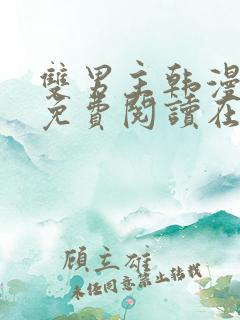 雙男主韩漫
免費閱讀在
顧立雄
未經同意禁止轉載